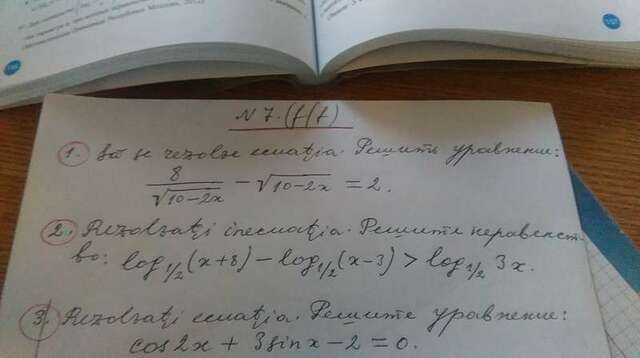 N 7. (f/f)
1. Să se rezolve ecuația. Решить уравнение:
8/√10-2x - √10-2x = 2.
2. Rezolvați inecuația. Решите неравенст-
во: log₁/₂(x+8) - log₁/₂(x-3) > log₁/₂ 3x.
3. Rezolvați ecuația. Решите уравнение:
cos2x + 3sinx - 2 = 0.